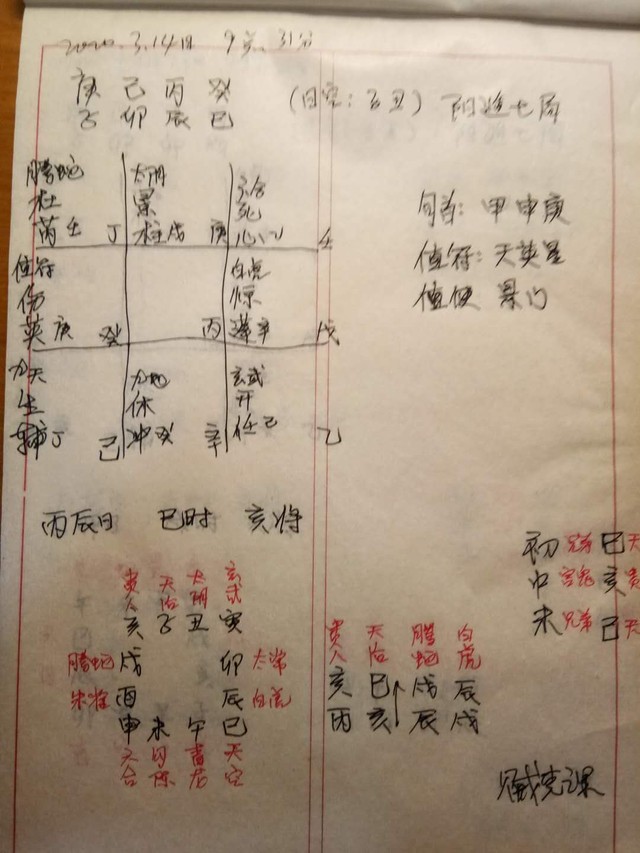 2020.3.14日 9点31分
庚 己 丙 癸
子 卯 辰 巳
(日空:子丑) 阳遁七局
腾蛇 太阴 六合
杜 景 死
芮壬 丁 柱戊 庚 心乙 壬
值符 白虎
伤 惊
英庚 癸 丙 蓬辛 戊
九天 九地 玄武
生 休 开
辅丁 己 冲癸 辛 任己 乙
旬首: 甲申庚
值符: 天英星
值使 景门
丙辰日 巳时 亥将
贵人 天后 太阴 玄武
亥 子 丑 寅
腾蛇 戌 卯 太常
朱雀 酉 辰 白虎
申 未 午 巳
六合 勾陈 青龙 天空
贵人 天后 腾蛇 白虎
亥 巳 戌 辰
丙 亥 辰 戌
初 兄弟 巳 天
中 官鬼 亥 贵
末 兄弟 巳 天
贼克课